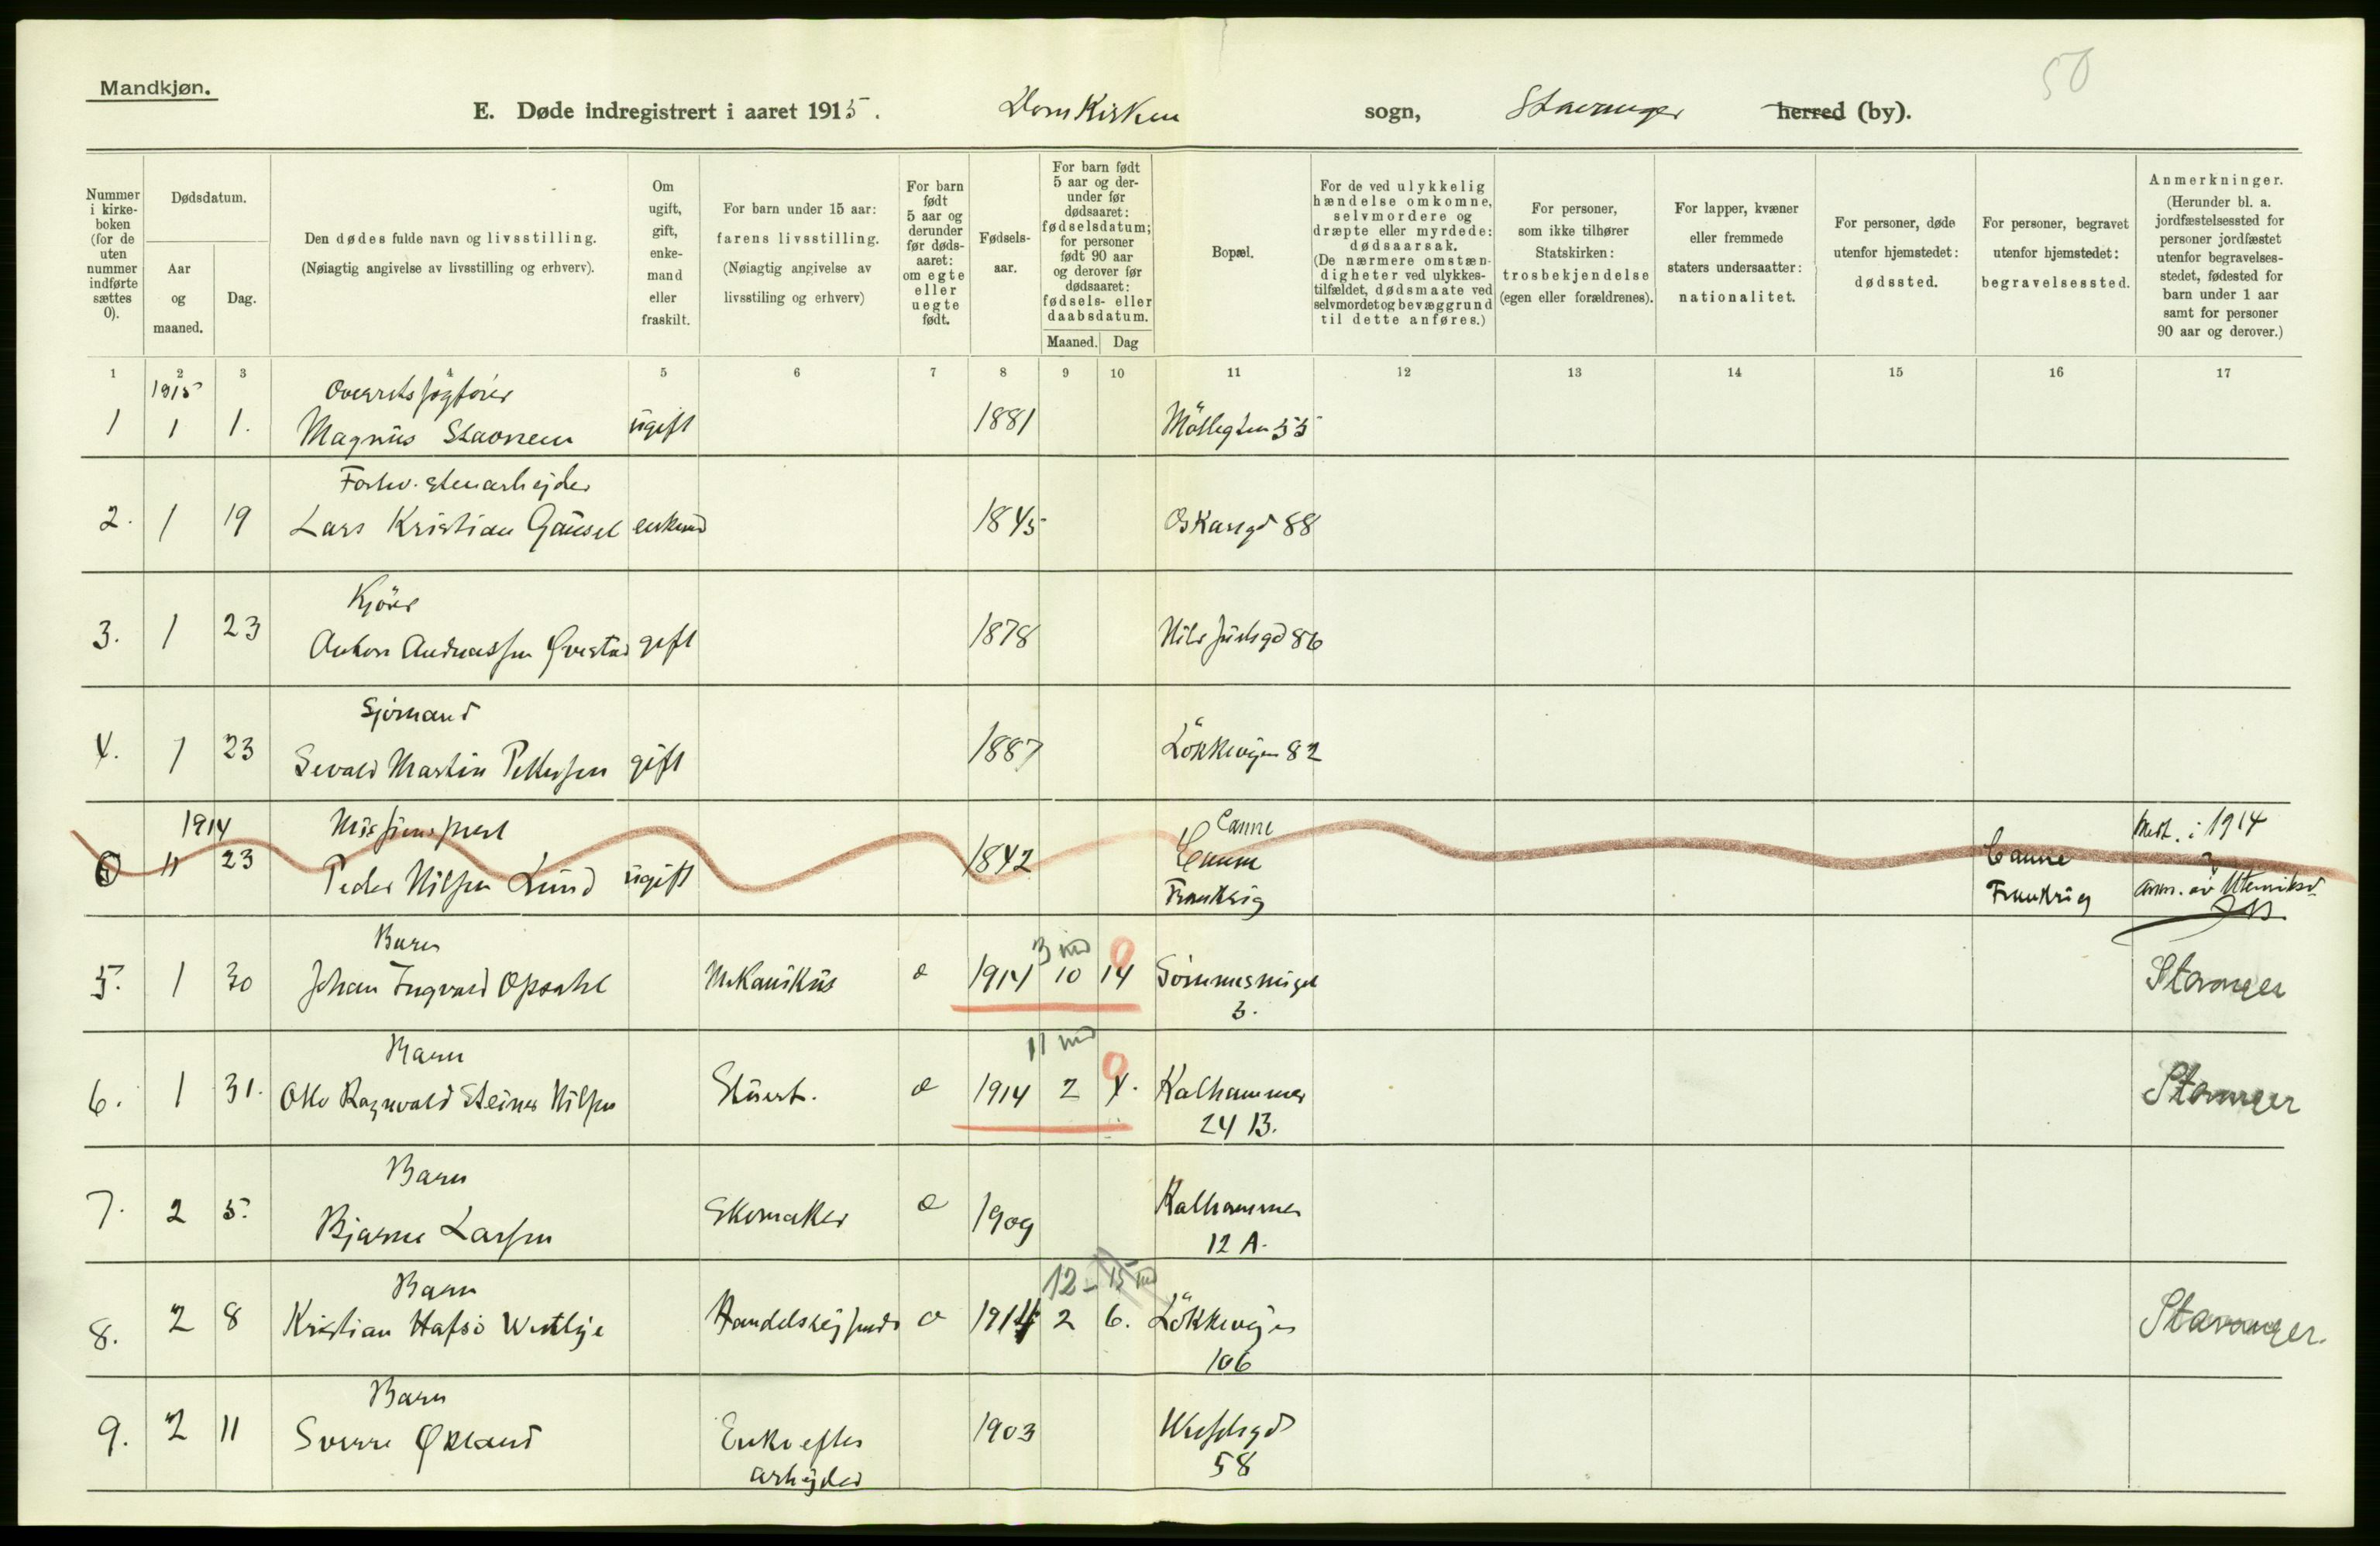 50
Mandkjøn.
E. Døde indregistrert i aaret 1915. Domkirken sogn, Stavanger herred (by).
Nummer i kirke-boken (for de uten nummer indførte sættes 0).
Dødsdatum.
Aar og maaned.
Dag.
Den dødes fulde navn og livsstilling.
(Nøiagtig angivelse av livsstilling og erhverv).
Om ugift, gift, enke-mand eller fraskilt.
For barn under 15 aar: farens livsstilling.
(Nøiagtig angivelse av livsstiling og erhverv)
For barn født 5 aar og derunder før døds-aaret: om egte eller uegte født.
Fødsels-aar.
For barn født 5 aar og der-under før dødsaaret: fødselsdatum; for personer født 90 aar og derover før dødsaaret: fødsels- eller daabsdatum.
Maaned. Dag
Bopæl.
For de ved ulykkelig hændelse omkomne, selvmordere og dræpte eller myrdede: dødsaarsak.
(De nærmere omstæn-digheter ved ulykkes-tilfældet, dødsmaate ved selvmordet og bevæggrund til dette anføres.)
For personer, som ikke tilhører Statskirken: trosbekjendelse (egen eller forældrenes).
For lapper, kvæner eller fremmede staters undersaatter: nationalitet.
For personer, døde utenfor hjemstedet: dødssted.
For personer, begravet utenfor hjemstedet: begravelsessted.
Anmerkninger.
(Herunder bl. a. jordfæstelsessted for personer jordfæstet utenfor begravelses-stedet, fødested for barn under 1 aar samt for personer 90 aar og derover.)
1 2 3 4 5 6 7 8 9 10 11 12 13 14 15 16 17
1915 Overretssagfører
1 1 1. Magnus Stavnem ugift 1881 Möllegten 55
Forhv. stenarbejder
2. 1 19 Lars Kristian Gausel enkemd 1845 Oskarsgd 88
Kjörer
3. 1 23 Anton Andreassen Qvestad gift 1878 Nils Juelsgd 86
Sjömand
4. 1 23 Sevald Martin Pettersen gift 1887 Lökkevejen 82
1914 Missionsprest Canne Medt. i 1914
0 11 23 Peder Nilsen Lund ugift 1842 Canne Canne
Frankrig Frankrig anm. av
Barn 3 md 0
5. 1 30 Johan Ingvald Opsahl Mekanikus e 1914 10 14 Stavanger
3.
Barn 11 md 0
6. 1 31. Otto Ragnvald Steiner Nilsen Stuert. e 1914 2 4. Kalhammer Stavanger
24 B.
Barn
7. 2 5. Bjarne Larsen Skomaker e 1909 Kalhammer
12 A.
Barn 12 - 15 md
8. 2 8 Kristian Hafsö Westlye Handelsrejsende e 1914 2 6. Lökkevejen Stavanger.
106
Barn
9. 2 11 Sverre Økland Enke efter 1903 Wesselsgd
arbejder 58